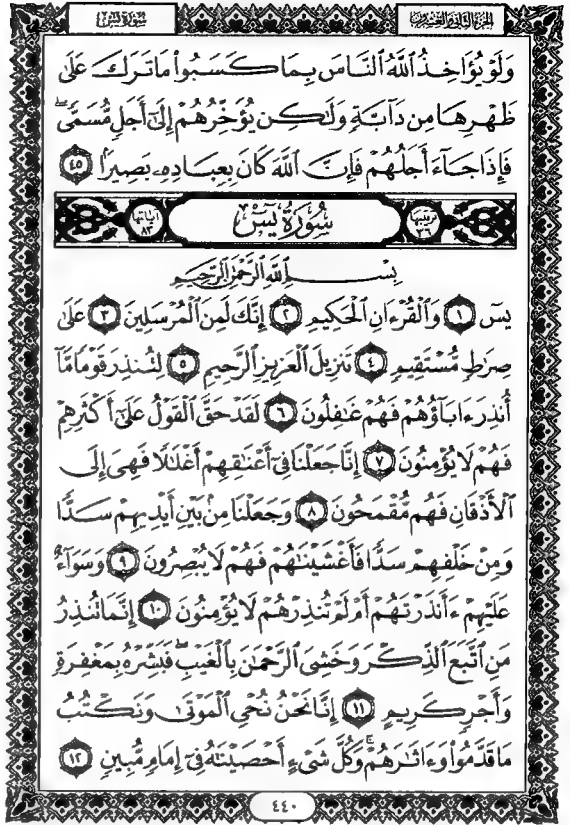 سُورَةُ يسٓ
الجزء الثاني والعشرون
وَلَوْ يُؤَاخِذُ ٱللَّهُ ٱلنَّاسَ بِمَا كَسَبُوا۟ مَا تَرَكَ عَلَىٰ
ظَهْرِهَا مِن دَآبَّةٍ وَلَـٰكِن يُؤَخِّرُهُمْ إِلَىٰٓ أَجَلٍ مُّسَمًّى ۖ
فَإِذَا جَآءَ أَجَلُهُمْ فَإِنَّ ٱللَّهَ كَانَ بِعِبَادِهِۦ بَصِيرًۢا ٤٥
ترتيبها ٣٦ سُورَةُ يسٓ آياتها ٨٣
بِسْمِ ٱللَّهِ ٱلرَّحْمَـٰنِ ٱلرَّحِيمِ
يسٓ ١ وَٱلْقُرْءَانِ ٱلْحَكِيمِ ٢ إِنَّكَ لَمِنَ ٱلْمُرْسَلِينَ ٣ عَلَىٰ
صِرَٰطٍ مُّسْتَقِيمٍ ٤ تَنزِيلَ ٱلْعَزِيزِ ٱلرَّحِيمِ ٥ لِتُنذِرَ قَوْمًا مَّآ
أُنذِرَ ءَابَآؤُهُمْ فَهُمْ غَـٰفِلُونَ ٦ لَقَدْ حَقَّ ٱلْقَوْلُ عَلَىٰٓ أَكْثَرِهِمْ
فَهُمْ لَا يُؤْمِنُونَ ٧ إِنَّا جَعَلْنَا فِىٓ أَعْنَـٰقِهِمْ أَغْلَـٰلًا فَهِىَ إِلَى
ٱلْأَذْقَانِ فَهُم مُّقْمَحُونَ ٨ وَجَعَلْنَا مِنۢ بَيْنِ أَيْدِيهِمْ سَدًّا
وَمِنْ خَلْفِهِمْ سَدًّا فَأَغْشَيْنَـٰهُمْ فَهُمْ لَا يُبْصِرُونَ ٩ وَسَوَآءٌ
عَلَيْهِمْ ءَأَنذَرْتَهُمْ أَمْ لَمْ تُنذِرْهُمْ لَا يُؤْمِنُونَ ١٠ إِنَّمَا تُنذِرُ
مَنِ ٱتَّبَعَ ٱلذِّكْرَ وَخَشِىَ ٱلرَّحْمَـٰنَ بِٱلْغَيْبِ ۖ فَبَشِّرْهُ بِمَغْفِرَةٍ
وَأَجْرٍ كَرِيمٍ ١١ إِنَّا نَحْنُ نُحْىِ ٱلْمَوْتَىٰ وَنَكْتُبُ
مَا قَدَّمُوا۟ وَءَاثَـٰرَهُمْ ۚ وَكُلَّ شَىْءٍ أَحْصَيْنَـٰهُ فِىٓ إِمَامٍ مُّبِينٍ ١٢
٤٤٠